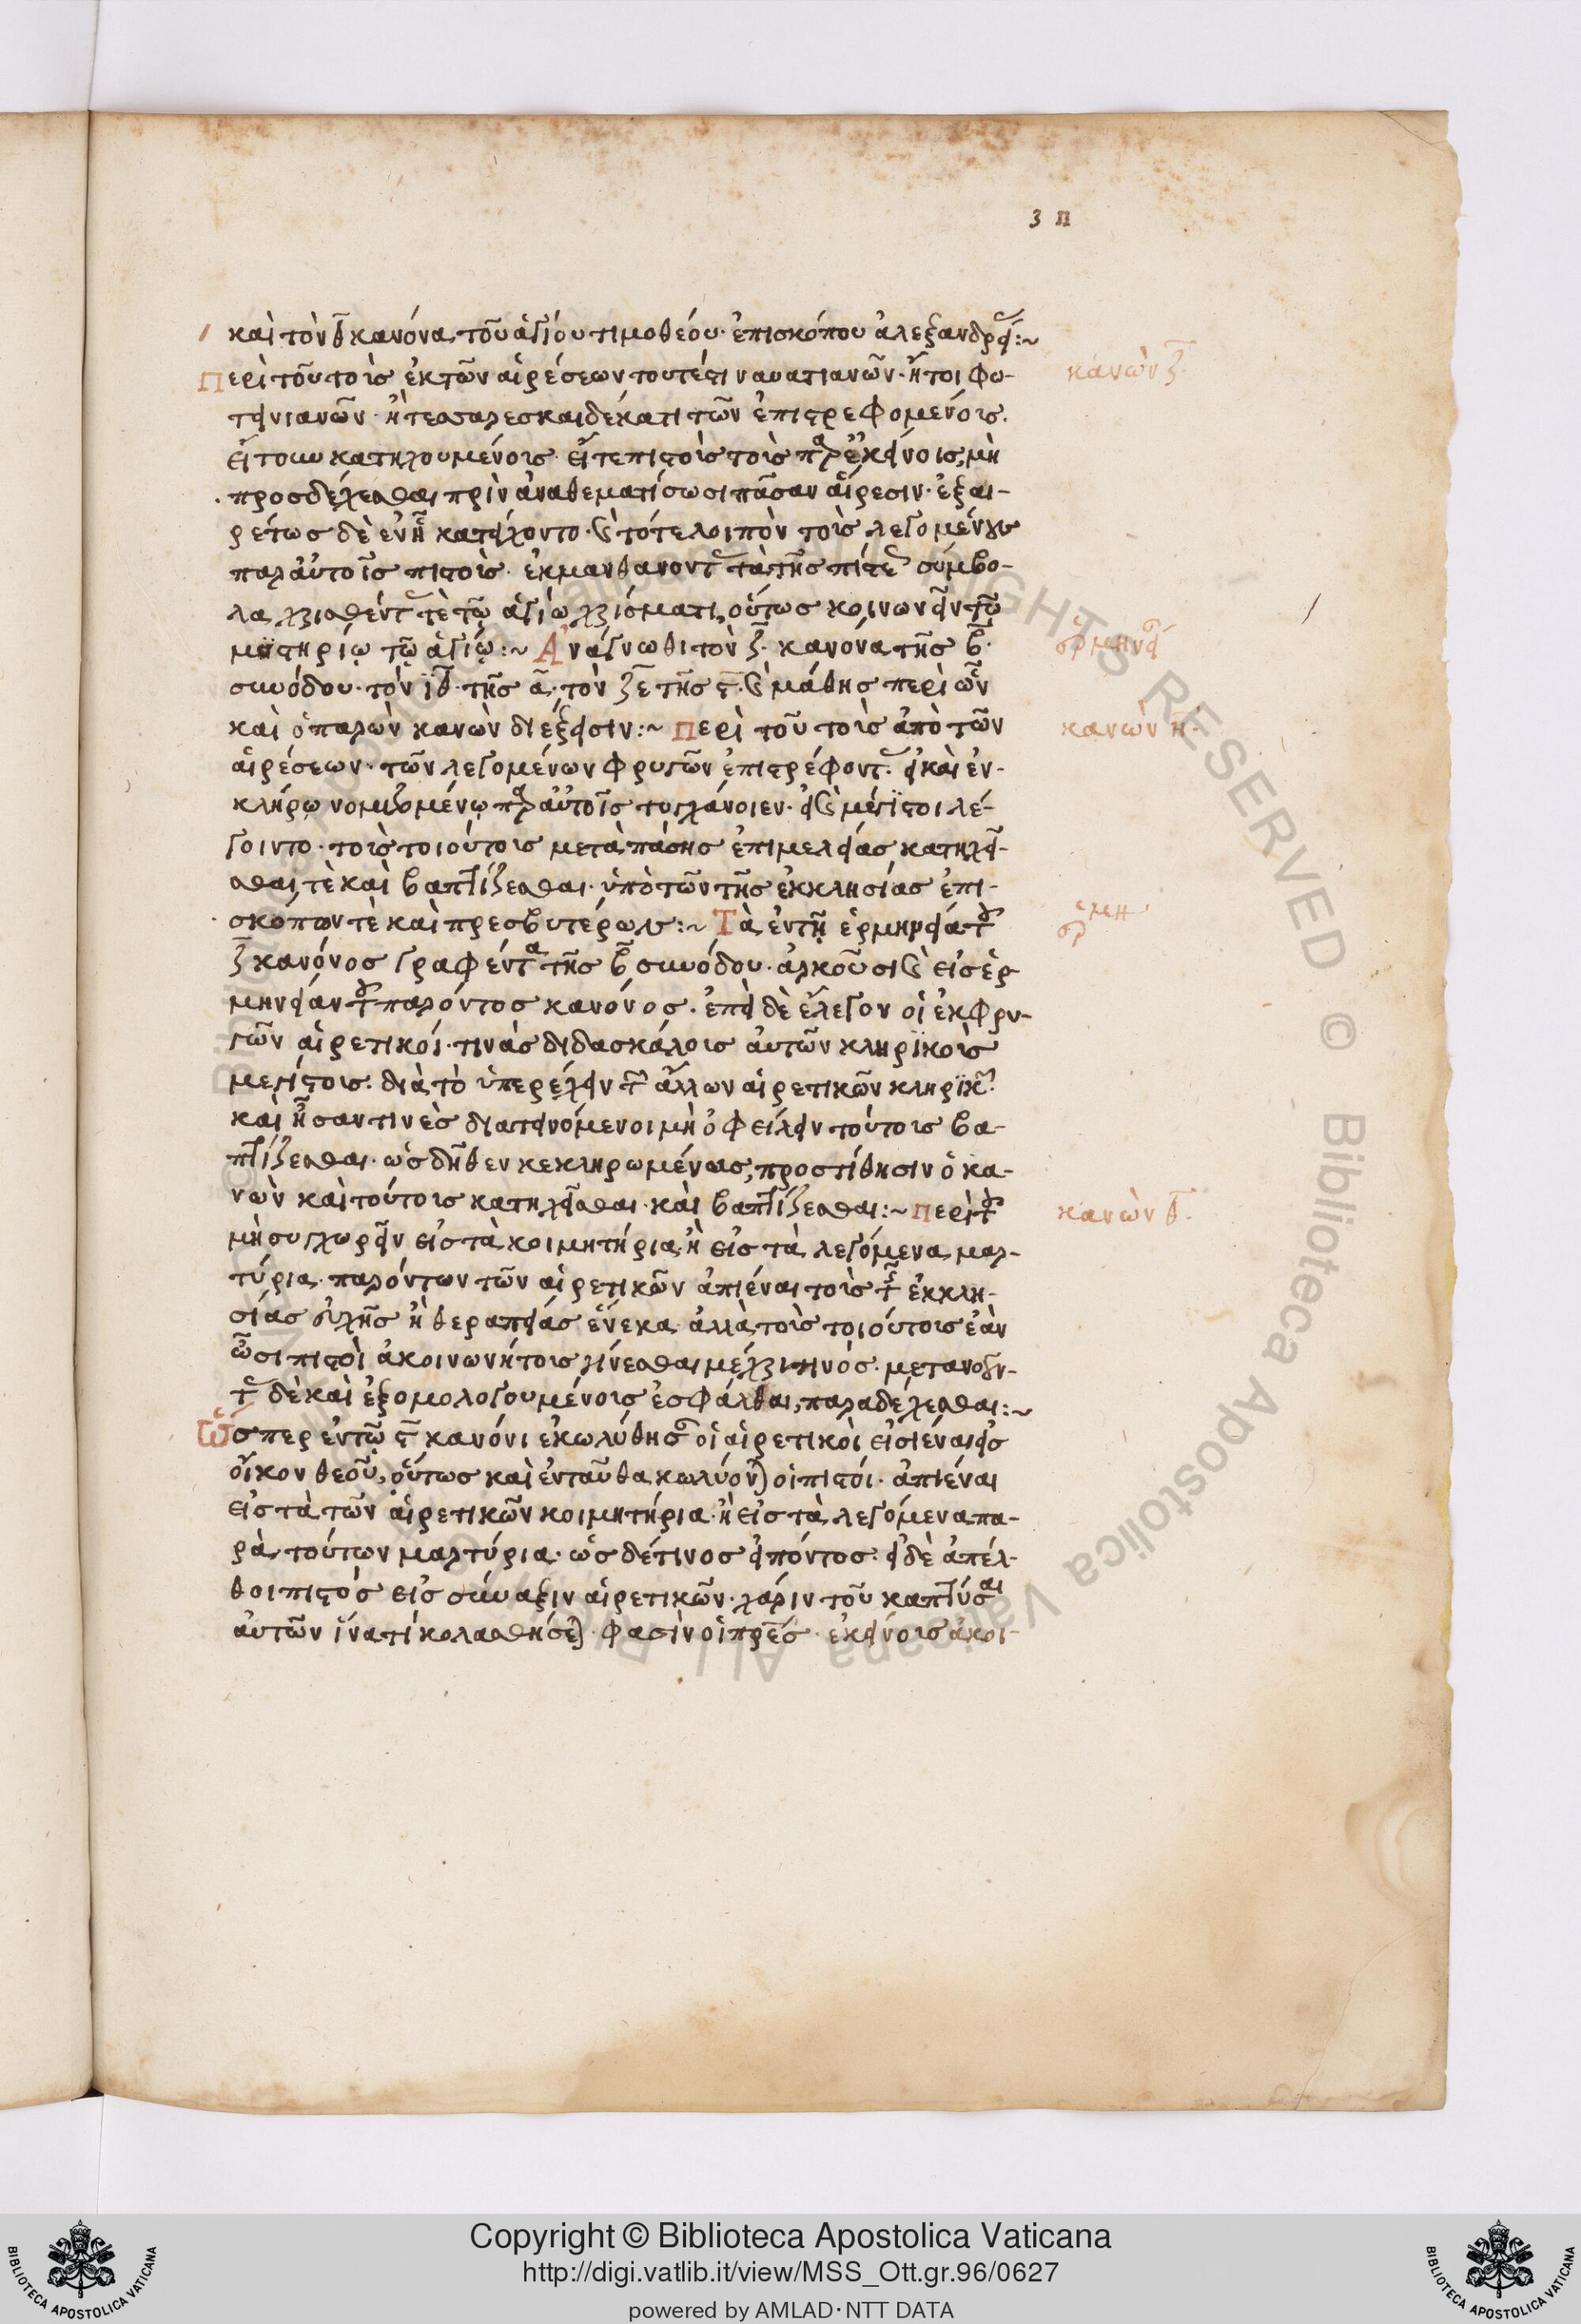 3 π
καὶ τὸν θ κανόνα τοῦ ἁγίου τιμοθέου· ἐπισκόπου ἀλεξανδρεί:~
Περὶ τοῦ τοὺς ἐκ τῶν αἱρέσεων τουτέστι ναυατιανῶν· ἤτοι φω-
κανὼν ζ
τεινιανῶν· ἢ τεσσαρεσκαιδεκατιτῶν ἐπιστρεφομένους.
εἴτουν κατηχουμένους· εἴτε πιστοὺς τοὺς παρ ἐκείνοις, μὴ
προσδέχεσθαι πρὶν ἀναθεματίσωσι πᾶσαν αἵρεσιν· ἐξαι-
ρέτως δὲ ἐν ᾗ κατείχοντο· καὶ τότε λοιπὸν τοὺς λεγομένους
παρ αὐτοῖς πιστοὺς· ἐκμανθάνοντ τὰ τῆς πίστε σύμβο-
λα, χρισθέντ τὲ τῷ ἁγίω χρίσματι, οὕτως κοινωνεῖν τῶ
μυστηρίῳ τῷ ἁγίῳ:~ Ἀνάγνωθι τὸν ζ· κανόνα τῆς β·
ἑρμηνεί
συνόδου· τὸν ιθ· τῆς α· τὸν ϟε τῆς ϛ· καὶ μάθης περὶ ὧν
καὶ ὁ παρὼν κανὼν διέξεισιν:~ Περὶ τοῦ τοὺς ἀπὸ τῶν
κανὼν η·
αἱρέσεων· τῶν λεγομένων φρυγῶν ἐπιστρέφοντ· εἰ καὶ ἐν-
κλήρῳ νομιζομένῳ παρ αὐτοῖς τυγχάνοιεν· εἰ καὶ μέγιστοι λέ-
γοιντο· τοὺς τοιούτους μετὰ πάσης ἐπιμελείας κατηχεῖ-
σθαι, τὲ καὶ βαπτίζεσθαι· ὑπὸ τῶν τῆς ἐκκλησίας ἐπι-
σκόπων τὲ καὶ πρεσβυτέρων:~ Τὰ ἐν τῇ ἑρμηνεία τοῦ
ζ κανόνος γραφέντα τῆς β συνόδου· ἀρκοῦσι καὶ εἰς ἑρ-
μηνείαν τοῦ παρόντος κανόνος· ἐπεὶ δὲ ἔλεγον οἱ ἐκ φρυ-
γῶν αἱρετικοί· τινὰς διδασκάλους αὐτῶν κληρικοὺς
μεγίστους· διὰ τὸ ὑπερέχειν τῶν ἄλλων αἱρετικῶν κληρικ
καὶ ἦσαν τινὲς διατεινόμενοι μὴ ὀφείλειν τούτους βα-
πτίζεσθαι· ὡς δῆθεν κεκληρωμένους, προστίθησιν ὁ κα-
νὼν καὶ τούτους κατηχεῖσθαι· καὶ βαπτίζεσθαι:~ Περὶ τοῦ
κανὼν θ·
μὴ συγχωρεῖν εἰς τὰ κοιμητήρια, ἢ εἰς τὰ λεγόμενα μαρ-
τύρια· παρόντων τῶν αἱρετικῶν ἀπιέναι τοὺς τῆς ἐκκλη-
σίας εὐχῆς ἢ θεραπείας ἕνεκα· ἀλλὰ τοὺς τοιούτους ἐὰν
ὦσι πιστοὶ ἀκοινωνήτους γίνεσθαι μέχρι τινός· μετανοοῦν-
τ δὲ καὶ ἐξομολογουμένους ἐσφάλθαι, παραδέχεσθαι:~
Ὥσπερ ἐν τῷ ϛ κανόνι ἐκωλύθησ οἱ αἱρετικοὶ εἰσιέναι εἰς
οἶκον θεοῦ, οὕτως καὶ ἐνταῦθα κωλύον οἱ πιστοί· ἀπιέναι
εἰς τὰ τῶν αἱρετικῶν κοιμητήρια· ἢ εἰς τὰ λεγόμενα πα-
ρὰ τούτων μαρτύρια· ὡς δέ τινος εἰπόντος· εἰ δὲ ἀπέλ-
θοι πιστὸς εἰς σύναξιν αἱρετικῶν· χάριν τοῦ καπτύσαι
αὐτῶν ἵνα τί κολασθήσε· φασὶν οἱ πρες· ἐκείνους ἀκοι-